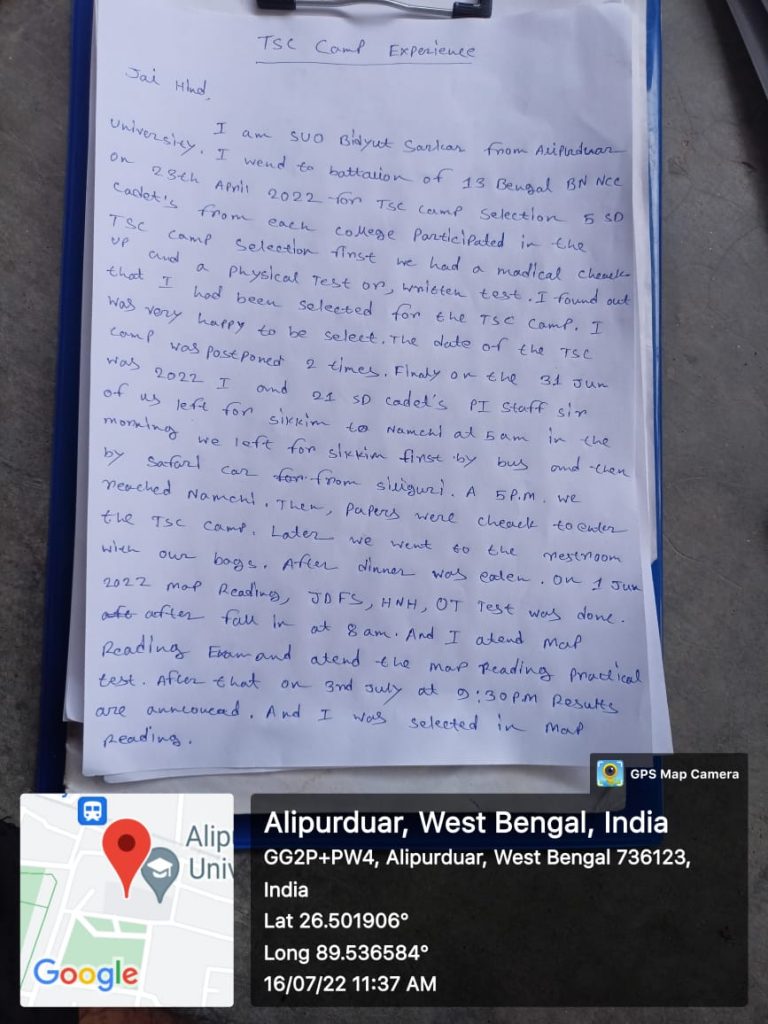 TSC Camp Experience
Jai Hind,
I am SUO Bidyut Sarkar from Alipurduar
University. I wend to battalion of 13 Bengal BN NCC
on 28th April 2022 for TSC Camp Selection 5 SD
Cadet's from each college participated in the
TSC camp selection first we had a madical cheack
up and a physical Test or, written test. I found out
that I had been selected for the TSC Camp. I
was very happy to be select. The date of the TSC
camp was postponed 2 times. Finaly on the 31 Jun
was 2022 I and 21 SD cadet's PI Staff sir
of us left for sikkim to Namchi at 5 am in the
morning we left for sikkim first by bus and then
by safari car for from siliguri. A 5 P.M. we
reached Namchi. Then, papers were cheack to enter
the TSC Camp. Later we went to the restroom
with our bags. After dinner was eaten. On 1 Jun
2022 map Reading, JDFS, HNH, OT Test was done.
aft after fall in at 8 am. And I atend map
Reading Exam and atend the map reading practical
test. After that on 3rd July at 9:30 PM Results
are annoucead. And I was selected in map
reading.
GPS Map Camera
Alip
Univ
Google
Alipurduar, West Bengal, India
GG2P+PW4, Alipurduar, West Bengal 736123,
India
Lat 26.501906°
Long 89.536584°
16/07/22 11:37 AM